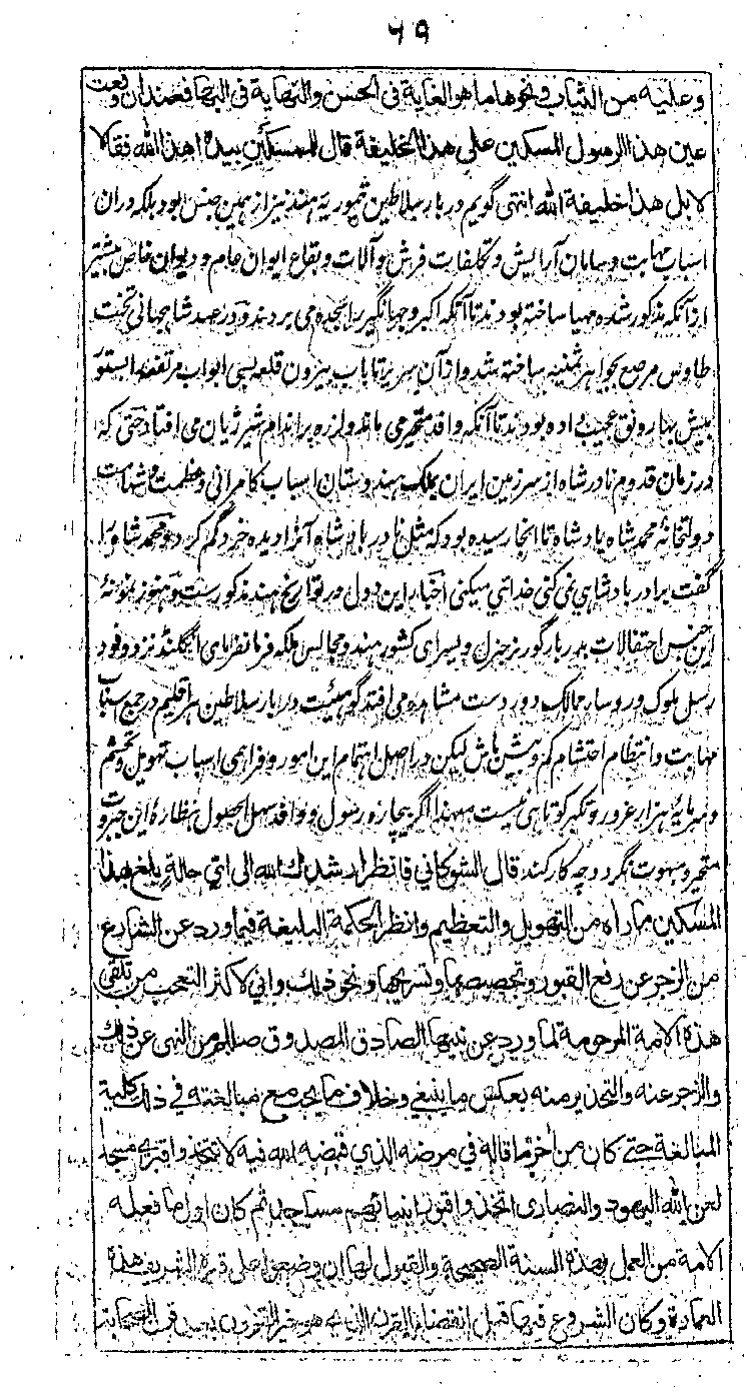 ۶۹
وعليه من الثياب ونحوها ما هو الغاية في الحسن والنهاية في البهاء فعندان وقعت
عين هذا الرسول المسكين على هذا الخليفة قال للمسكين بيده اهذا الله فقالا
لا بل هذا خليفة الله انتهى گویم دربار سلاطین تیموریه هند نیز از همین جنس بود بلکه دران
اسباب مهابت و سامان آرایش و تکلفات فرش و آلات و بقاع ایوان عام و دیوان خاص بیشتر
از آنکه مذکور شد مهیا ساخته بودند تا آنکه اکبر و جهانگیر را سجده می بردند و در عهد شاهجهانی تخت
طاوس مرصع بجواهر ثمینه ساخته شد و از آن سریر تا باب بیرون قلعه بسی ابواب مرتفعه
بیش بها رونق عجیب داده بودند تا آنکه وافد متحیر می ماند و لرزه بر اندام شیر ژیان می افتاد حتی که
در زمان قدوم نادر شاه از سرزمین ایران بملک هندوستان اسباب کامرانی و عظمت و شهامت
دولتخانه محمد شاه بادشاه تا انجا رسیده بود که مثل نادر بادشاه آنرا دیده خرد گم کرد و محمد شاه را
گفت برادر بادشاهی نمی کنی خدائی میکنی اخبار این دول در تواریخ هند مذکورست و هنوز نمونهٔ
این جنس احتفالات بدربار گورنر جنرل ویسرای کشور هند و مجالس ملکه فرمانفرمای انگلنڈ نزد وفود
رسل ملوک و روسار ممالک دور دست مشاهده می افتد گو هیئت دربار سلاطین هر اقلیم در جمع اسباب
مهابت و انتظام احتشام کم و بیش باش لیکن در اصل اهتمام این امور و فراهمی اسباب تهویل و تحشم
و سرمایهٔ هزار غرور و تکبر کوتاهی نیست مهذا اگر بیچاره رسول و وافد سهل الحصول بنظارهٔ این جبروت
متحیر و مبهوت نگردد چه کار کند قال الشوكاني فانظر ارشدك الله الى اي حالة بلغ بهذا
المسكين ما رآه من التهويل والتعظيم وانظر الحكمة البليغة فيما ورد عن الشارع
من الزجر عن رفع القبور وتجصيصها وتسريجها ونحو ذلك واني لاكثر التعجب من تلقي
هذه الامة المرحومة لما ورد عن نبيها الصادق المصدوق صلم من النهي عن ذلك
والزجر عنه والتحذير منه بعكس ما ينبغي وخلاف ما يجب مع مبالغته في ذلك كلية
المبالغة حتى كان من آخر ما قاله في مرضه الذي قبضه الله فيه لا تتخذوا قبري مسجدا
لعن الله اليهود والنصارى اتخذوا قبور انبيائهم مساجد ثم كان اول ما فعله
الامة من العمل بهذه السنة الصحيحة والقبول لها ان وضعوا على قبره الشريف هذه
العمارة وكان الشروع فيها قبل انقضاء القرن الذي هو خير القرون بعد قرن الصحابة